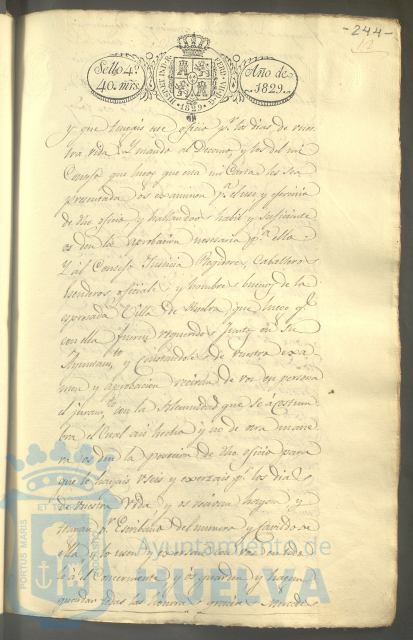 -244-
12
Sello 4º
40. mrs.
HISPAN. ET IND. R.
FERD. VII. D. G.
1829
Año de
1829.
y que tengais ese oficio pr. los dias de vues
tra vida. Y mando al Decano, y los del mi
Consejo que luego que esta mi Carta les sea
presentada os examinen pª. el uso y exercicio
de dho oficio y hallandoos habil y suficiente
os den la aprobacion necesaria pª. ello.
Y al Consejo Justicia Regidores, Caballeros
Escuderos oficiales y hombres buenos de la
expresada Villa de Huelva que luego qe.
con ella fueren requeridos Juntos en su
Ayuntamto. y constandoles de vuestro exa
men y aprobacion reciban de vos en persona
el juramto. con la solemnidad que se acostum
bra el Cual asi hecho y no de otra mane
ra os den la posesion de dho oficio para
que le hayais useis y exerzais pr. los dias
de vuestra vida y os reciban hayan y
tengan pr. Escribano del numero y
ella y lo usen y exerzan con vos en todo
lo á el concerniente y os guarden y hagan
guardar todas las honras gracias
PORTUS MARIS
ET TERRAE
Ayuntamiento de
HUELVA